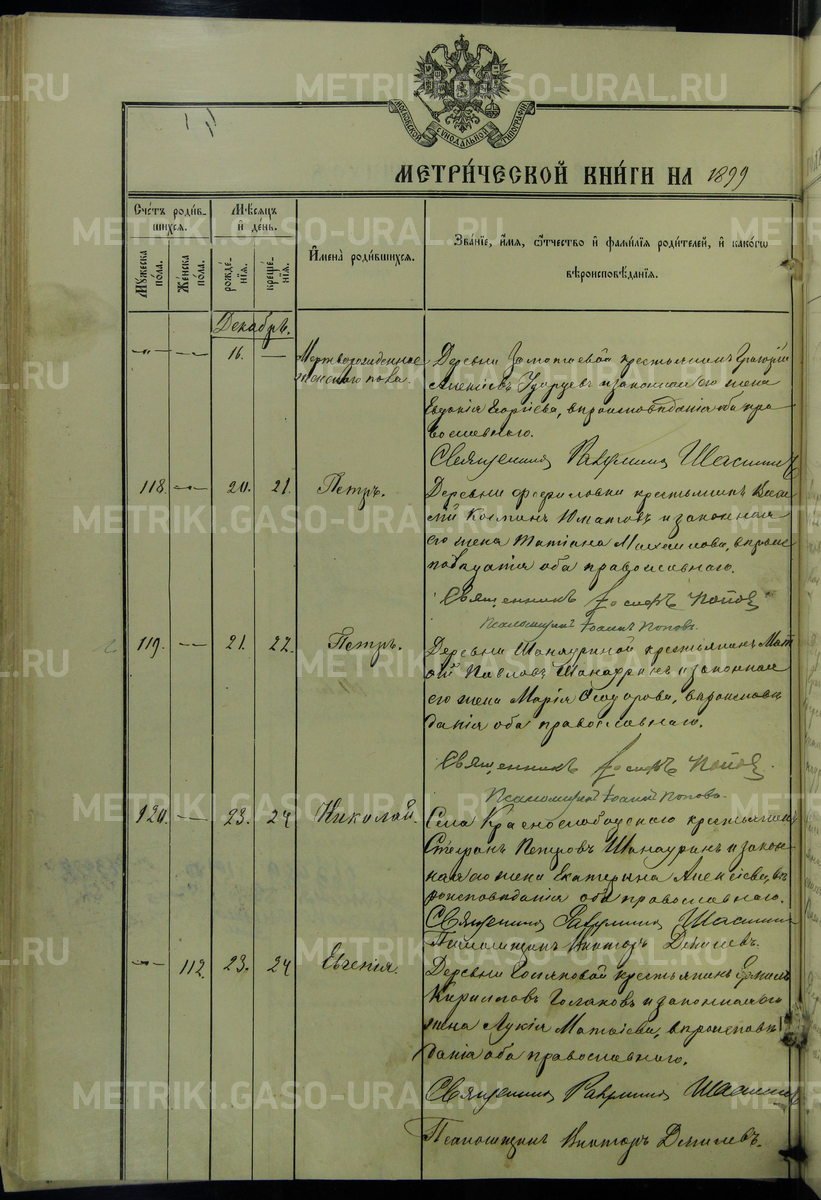 METRIKI.GASO-URAL.RU
МОСКОВСКОЙ СѴНОДАЛЬНОЙ ТИПОГРАФІИ
МЕТРИ́ЧЕСКОЙ КНИ́ГИ НА 1899
Сче́тъ роди́вшихся.
Му́жеска по́ла.
Же́нска по́ла.
Мѣ́сяцъ и҆ де́нь.
рожде́нїѧ.
креще́нїѧ.
И҆мена̀ роди́вшихся.
Зва́нїе, и҆́мѧ, ѻ҆́тчество и҆ фами́лїѧ роди́телей, и҆ како́гѡ
вѣроисповѣ́данїѧ.
Декабрь.
16. —
Мертворожденное
женскаго пола.
Деревни крестьянинъ Григорій
Алексіевъ и законная его жена
Евдокія Егоріева, вѣроисповѣданія оба пра
вославнаго.
Священникъ
118. 20. 21. Петръ.
Деревни крестьянинъ Васи
лій Козминъ Юматовъ и законная
его жена Татіана Михаилова, вѣроис
повѣданія оба православнаго.
Священникъ Іосифъ Поповъ
Псаломщикъ Іоаннъ Поповъ.
119. — 21. 22. Петръ.
Деревни Шанауриной крестьянинъ Мат
ѳій Павловъ Шанауринъ и законная
его жена Марія Ѳеодорова, вѣроисповѣ
данія оба православнаго.
Священникъ Іосифъ Поповъ.
Псаломщикъ Іоаннъ Поповъ.
120. — 23. 24 Николай.
Села Краснослободскаго крестьянинъ
Стефанъ Петровъ Шанауринъ и закон
ная его жена Екатерина Алексіева, вѣ
роисповѣданія оба православнаго.
Священникъ
Псаломщикъ Викторъ
112. 23. 24 Евгенія.
Деревни крестьянинъ Ермилъ
Кирилловъ и законная его
жена Лукія Матѳіева, вѣроисповѣ
данія оба православнаго.
Священникъ
Псаломщикъ Викторъ